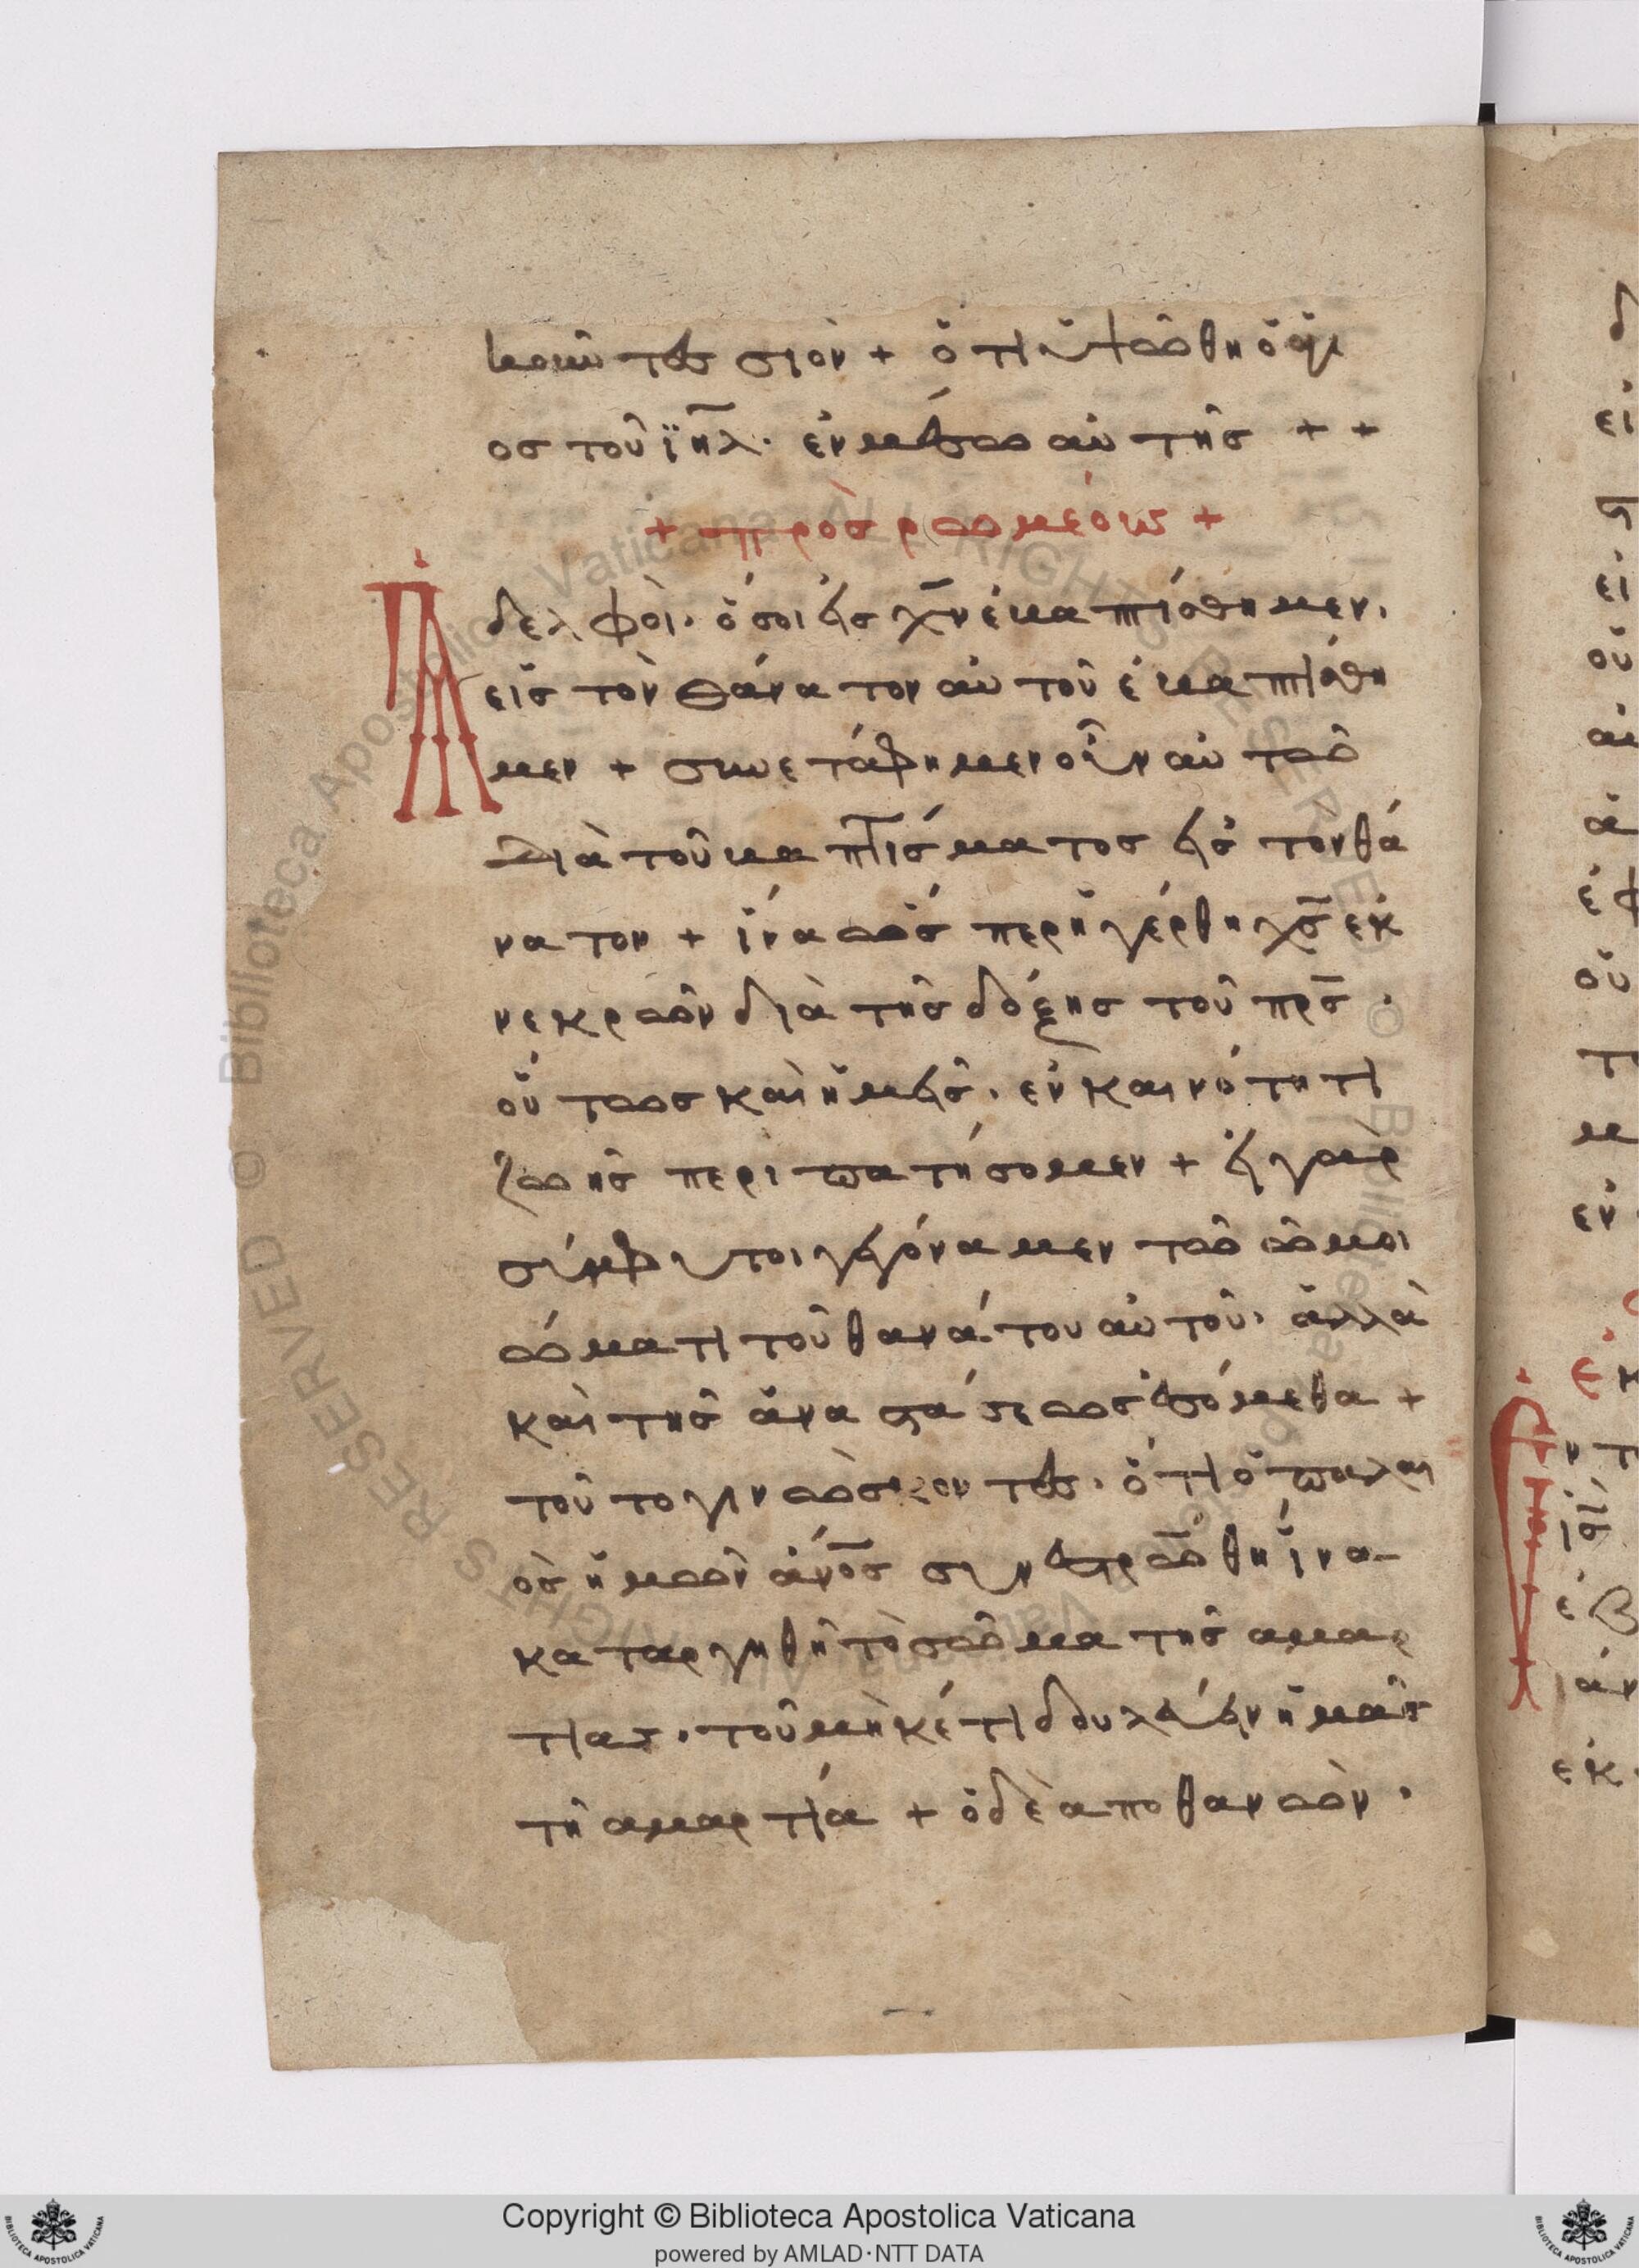 κοῦντες σιὸν + ὅτι ὑψώθη ὁ ἅγι
οσ τοῦ ϊη̅λ· ἐν μέσω αὐτῆς + +
+ πρὸσ ρωμέους +
Ἀ
δελφοὶ· ὅσοι εἰς χ̅ν ἐβαπτίσθημεν,
εἰς τὸν θάνατον αὐτοῦ ἐβαπτίσθη
μεν + συνετάφημεν οὖν αὐτῶ
διὰ τοῦ βαπτίσματος εἰς τὸν θά
νατον + ἵνα ὥσπερ ἠγέρθη χ̅ς ἐκ
νεκρῶν διὰ τῆς δόξης τοῦ πρ̅ς ·
οὕτως καὶ ἡμεῖς· ἐν καινότητι
ζωῆς περιπατήσομεν + εἰ γὰρ
σύμφυτοι γεγόναμεν τῶ ὡμοι
ώματι τοῦ θανάτου αὐτοῦ· ἀλλὰ
καὶ τῆς ἀναστάσεως ἐσόμεθα +
τοῦτο γινώσκοντες· ὅτι ὁ παλαι
ὸς ἡμῶν ἀν̅ος συνεστρώθη ἵνα
καταργηθῆ τὸ σῶμα τῆς αμαρ
τιας· τοῦ μὴκέτι δουλεύειν ἡμᾶς
τῆ αμαρτία + ὁ δὲ αποθανὼν ·
Copyright © Biblioteca Apostolica Vaticana
powered by AMLAD·NTT DATA